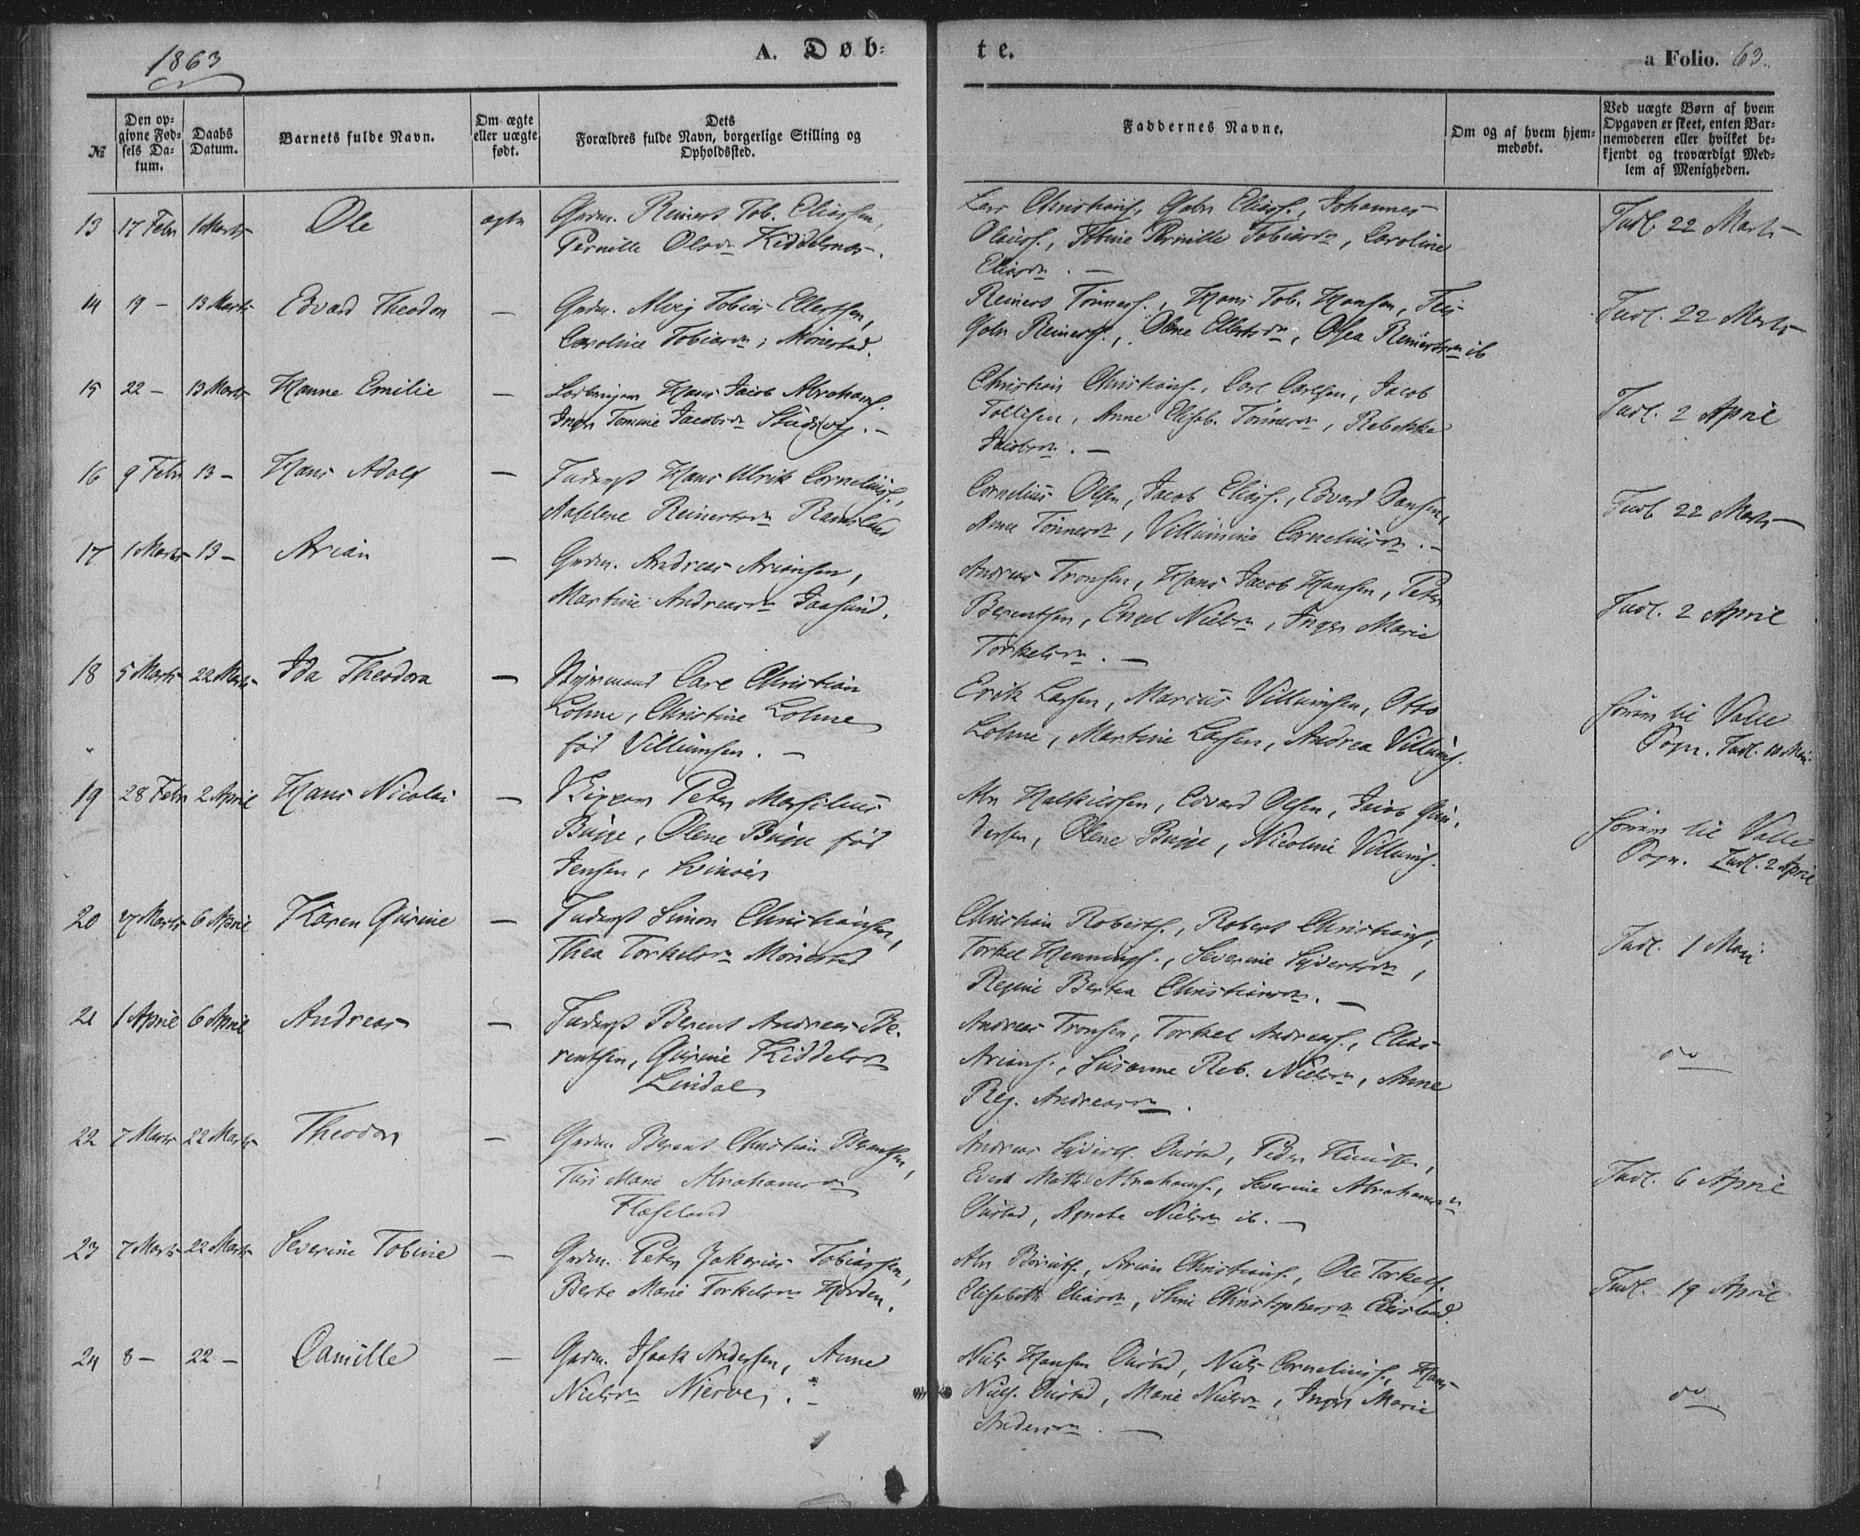 1863
A. Døb=
te.
a Folio. 63.
№
Den op-
givne Fød-
sels Da-
tum.
Daabs
Datum.
Barnets fulde Navn.
Om ægte
eller uægte
født.
Dets
Forældres fulde Navn, borgerlige Stilling og
Opholdssted.
Faddernes Navne.
Om og af hvem hjem-
medøbt.
Ved uægte Børn af hvem
Opgaven er skeet, enten Bar-
nemoderen eller hvilket be-
kjendt og troværdigt Med-
lem af Menigheden.
13 17 Febr 1 Marts Ole ægte Gaardm. Reinert Tob. Eliassen,
Pernille Olsdr
Christians., Gabr Eliass., Johannes
Tobine Pernille Tobiasdr, Caroline
Eliasdr. —
Indl. 22 Marts
14 19 — 13 Marts Edvard Theodor — Gaardm. Tobias Ellertsen,
Caroline Tobiasdr,
Reinert Tønnes., Hans Tob. Hansen,
Gabr Reinerts., Olene Ellertsdr, Osea Reinertsdr ib
Indl. 22 Marts
15 22 — 13 Marts Hanne Emilie — Hans Jacob Abrahams.
Tomine Jacobsdr
Christian Christians., Carl Carlsen, Jacob
Tollefsen, Anne Elisab. Tønnesdr, Rebekka
Jacobsdr. —
Indl. 2 April
16 9 Febr 13 — Hans Adolf — Inderst Hans Ulrik Cornelius.,
Aaselene Reinertsdr
Cornelius Olsen, Jacob Elias., Edvard
Anne Tønnesdr, Villumine Corneliusdr. —
Indl. 22 Marts
17 1 Marts 13 — Arian — Gaardm. Andreas Ariansen,
Martine Andreasdr
Andreas Tronsen, Hans Jacob Hansen, Peter
Berentsen, Engel Nielsdr, Inger Marie
Torkelsdr. —
Indl. 2 April
18 5 Marts 22 Marts Ida Theodora — Styrmand Carl Christian
Lohne, Christine Lohne
fød Villumsen. —
Erik Larsen, Marcus Villumsen, Otto
Lohne, Martine Larsen, Andrea Villums.
til Valle
Sogn. Indl. 10 Mai
19 28 Febr 2 April Hans Nicolai — Skipper Peter
Bugge, Olene Bugge fød
Jensen, Svinøer
Edvard Olsen, Jacob Gun-
dersen, Olene Bugge, Nicoline Villums.
til Valle
Sogn. Indl. 2 April
20 27 Marts 6 April Karen Gurine — Inderst Simon Christiansen,
Thea Torkelsdr
Christian Roberts., Robert Christians.,
Torkel Hennings., Severine Syvertsdr,
Regine Bertea Christiansdr. —
Indl. 1 Mai
21 1 April 6 April Andreas — Inderst Berent Andreas Be-
rentsen, Gurine Kiddelsdr
Lindal
Andreas Tronsen, Torkel Andreas., Elias
Arians., Susanne Reb. Nielsdr, Anne
Reg. Andreasdr.
do
22 7 Marts 22 Marts Theodor — Gaardm. Berent Christian Berentsen,
Marie Abrahamsdr
Andreas Syverts. Peder
Math. Abrahams., Severine Abrahamsdr
Agnete Nielsdr ib. —
Indl. 6 April
23 7 Marts 22 Marts Severine Tobine — Gaardm. Peter Zakarias Tobiassen,
Berte Marie Torkelsdr
Arian Christians., Ole Torkels.
Elisabeth Eliasdr, Stine Christophersdr
Indl. 19 April
24 8 — 22 — Camille — Gaardm. Isaak Andersen, Anne
Nielsdr Njerve. —
Niels Hansen Niels Cornelius., Hans
Niels. Marie Nielsdr, Inger Marie
Andersdr. —
do